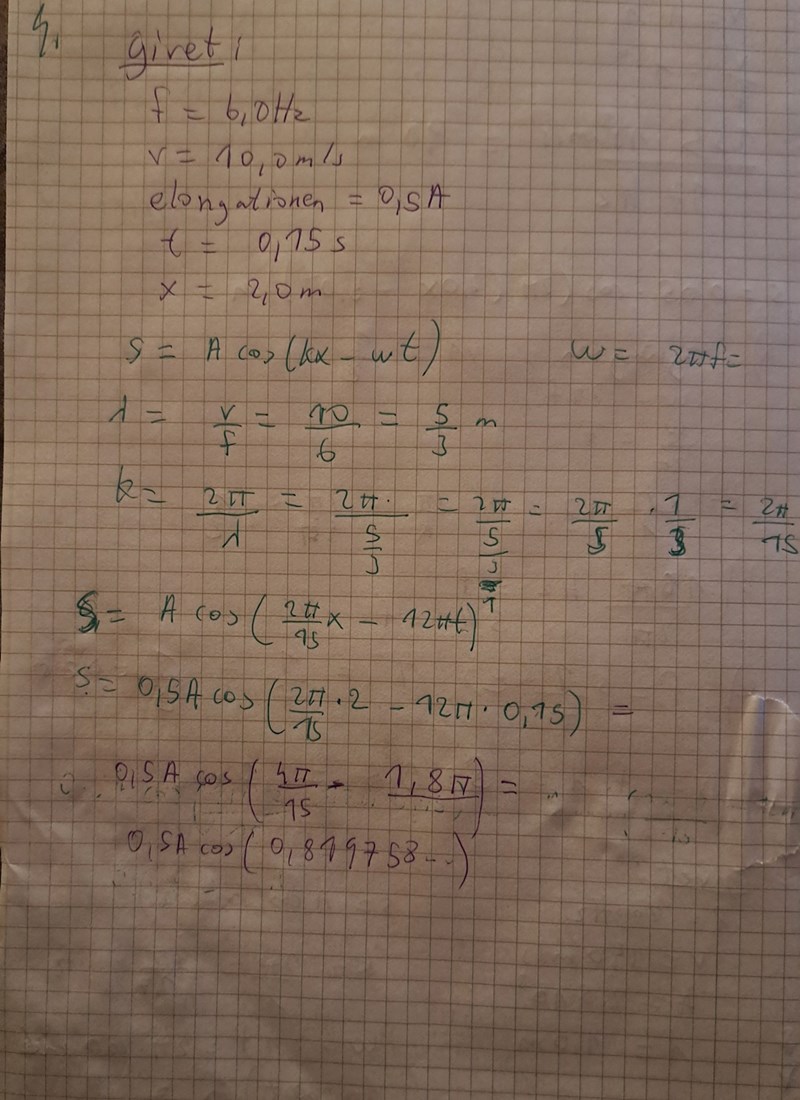 4.
givet:
f = 6,0Hz
v = 10,0 m/s
elongationen = 0,5A
t = 0,15 s
x = 2,0 m
s = A cos(kx - wt) w = 2πf=
λ = v/f = 10/6 = 5/3 m
k = 2π/λ = 2π·/(5/3) = 2π/(5/3)/1 = 2π/5 · 1/3 = 2π/15
s = A cos(2π/15 x - 12πt)
s = 0,5A cos(2π/15 · 2 - 12π · 0,15) =
0,5A cos(4π/15 - 1,8π) =
0,5A cos(0,819758...)